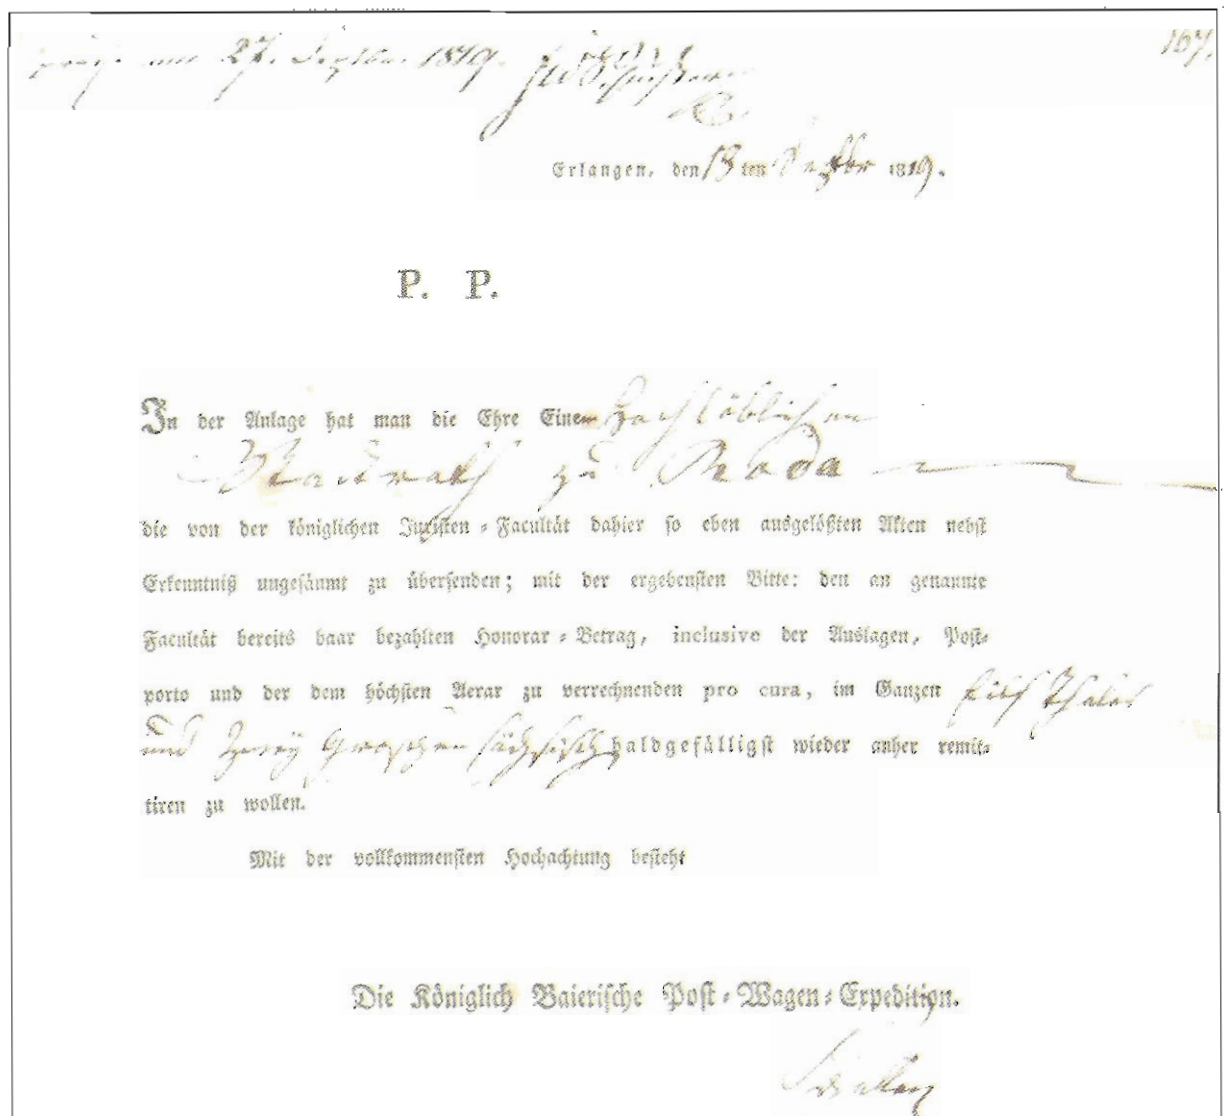 27. Septbr. 1819.
107.
Erlangen, den 13 ten Septbr 1819.
P. P.
In der Anlage hat man die Ehre Einem Hochlöblichen
Stadtrath zu Roda
die von der königlichen Juristen-Facultät dahier so eben ausgelößten Akten nebst
Erkenntniß ungesäumt zu übersenden; mit der ergebensten Bitte: den an genannte
Facultät bereits baar bezahlten Honorar-Betrag, inclusive der Auslagen, Post-
porto und der dem höchsten Aerar zu verrechnenden pro cura, im Ganzen Thaler
und Groschen sächsisch baldgefälligst wieder anher remit-
tiren zu wollen.
Mit der vollkommensten Hochachtung besteht
Die Königlich Baierische Post-Wagen-Expedition.